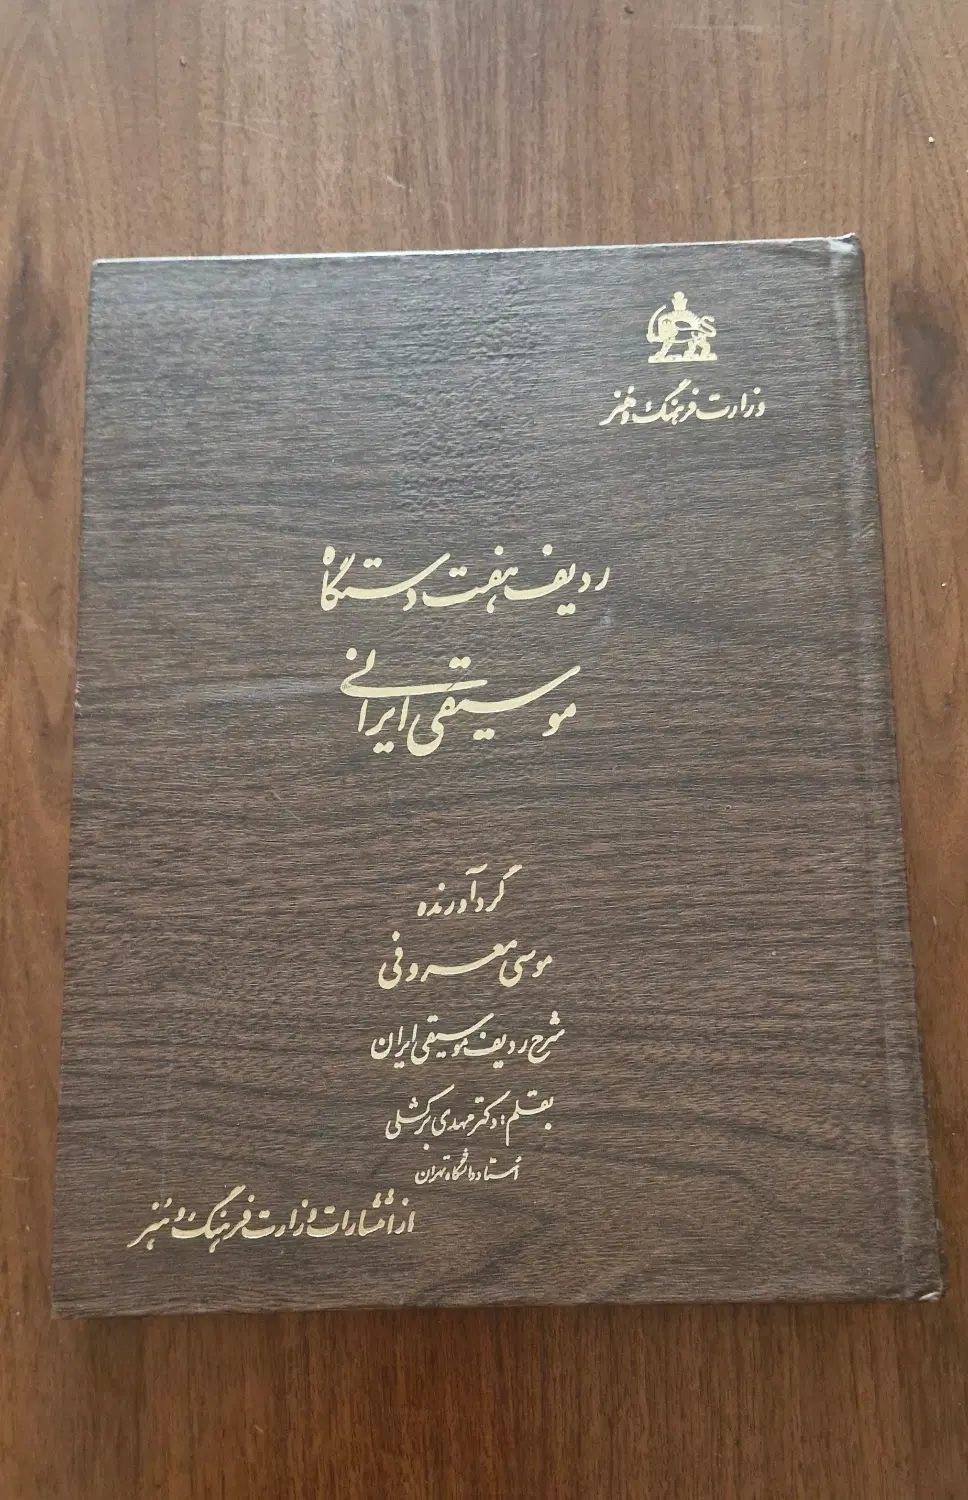 وزارت فرهنگ و هنر
ردیف هفت دستگاه
موسیقی ایرانی
گردآورنده
موسی معروفی
شرح ردیف موسیقی ایران
بقلم: دکتر مهدی برکشلی
استاد دانشگاه تهران
از انتشارات وزارت فرهنگ و هنر